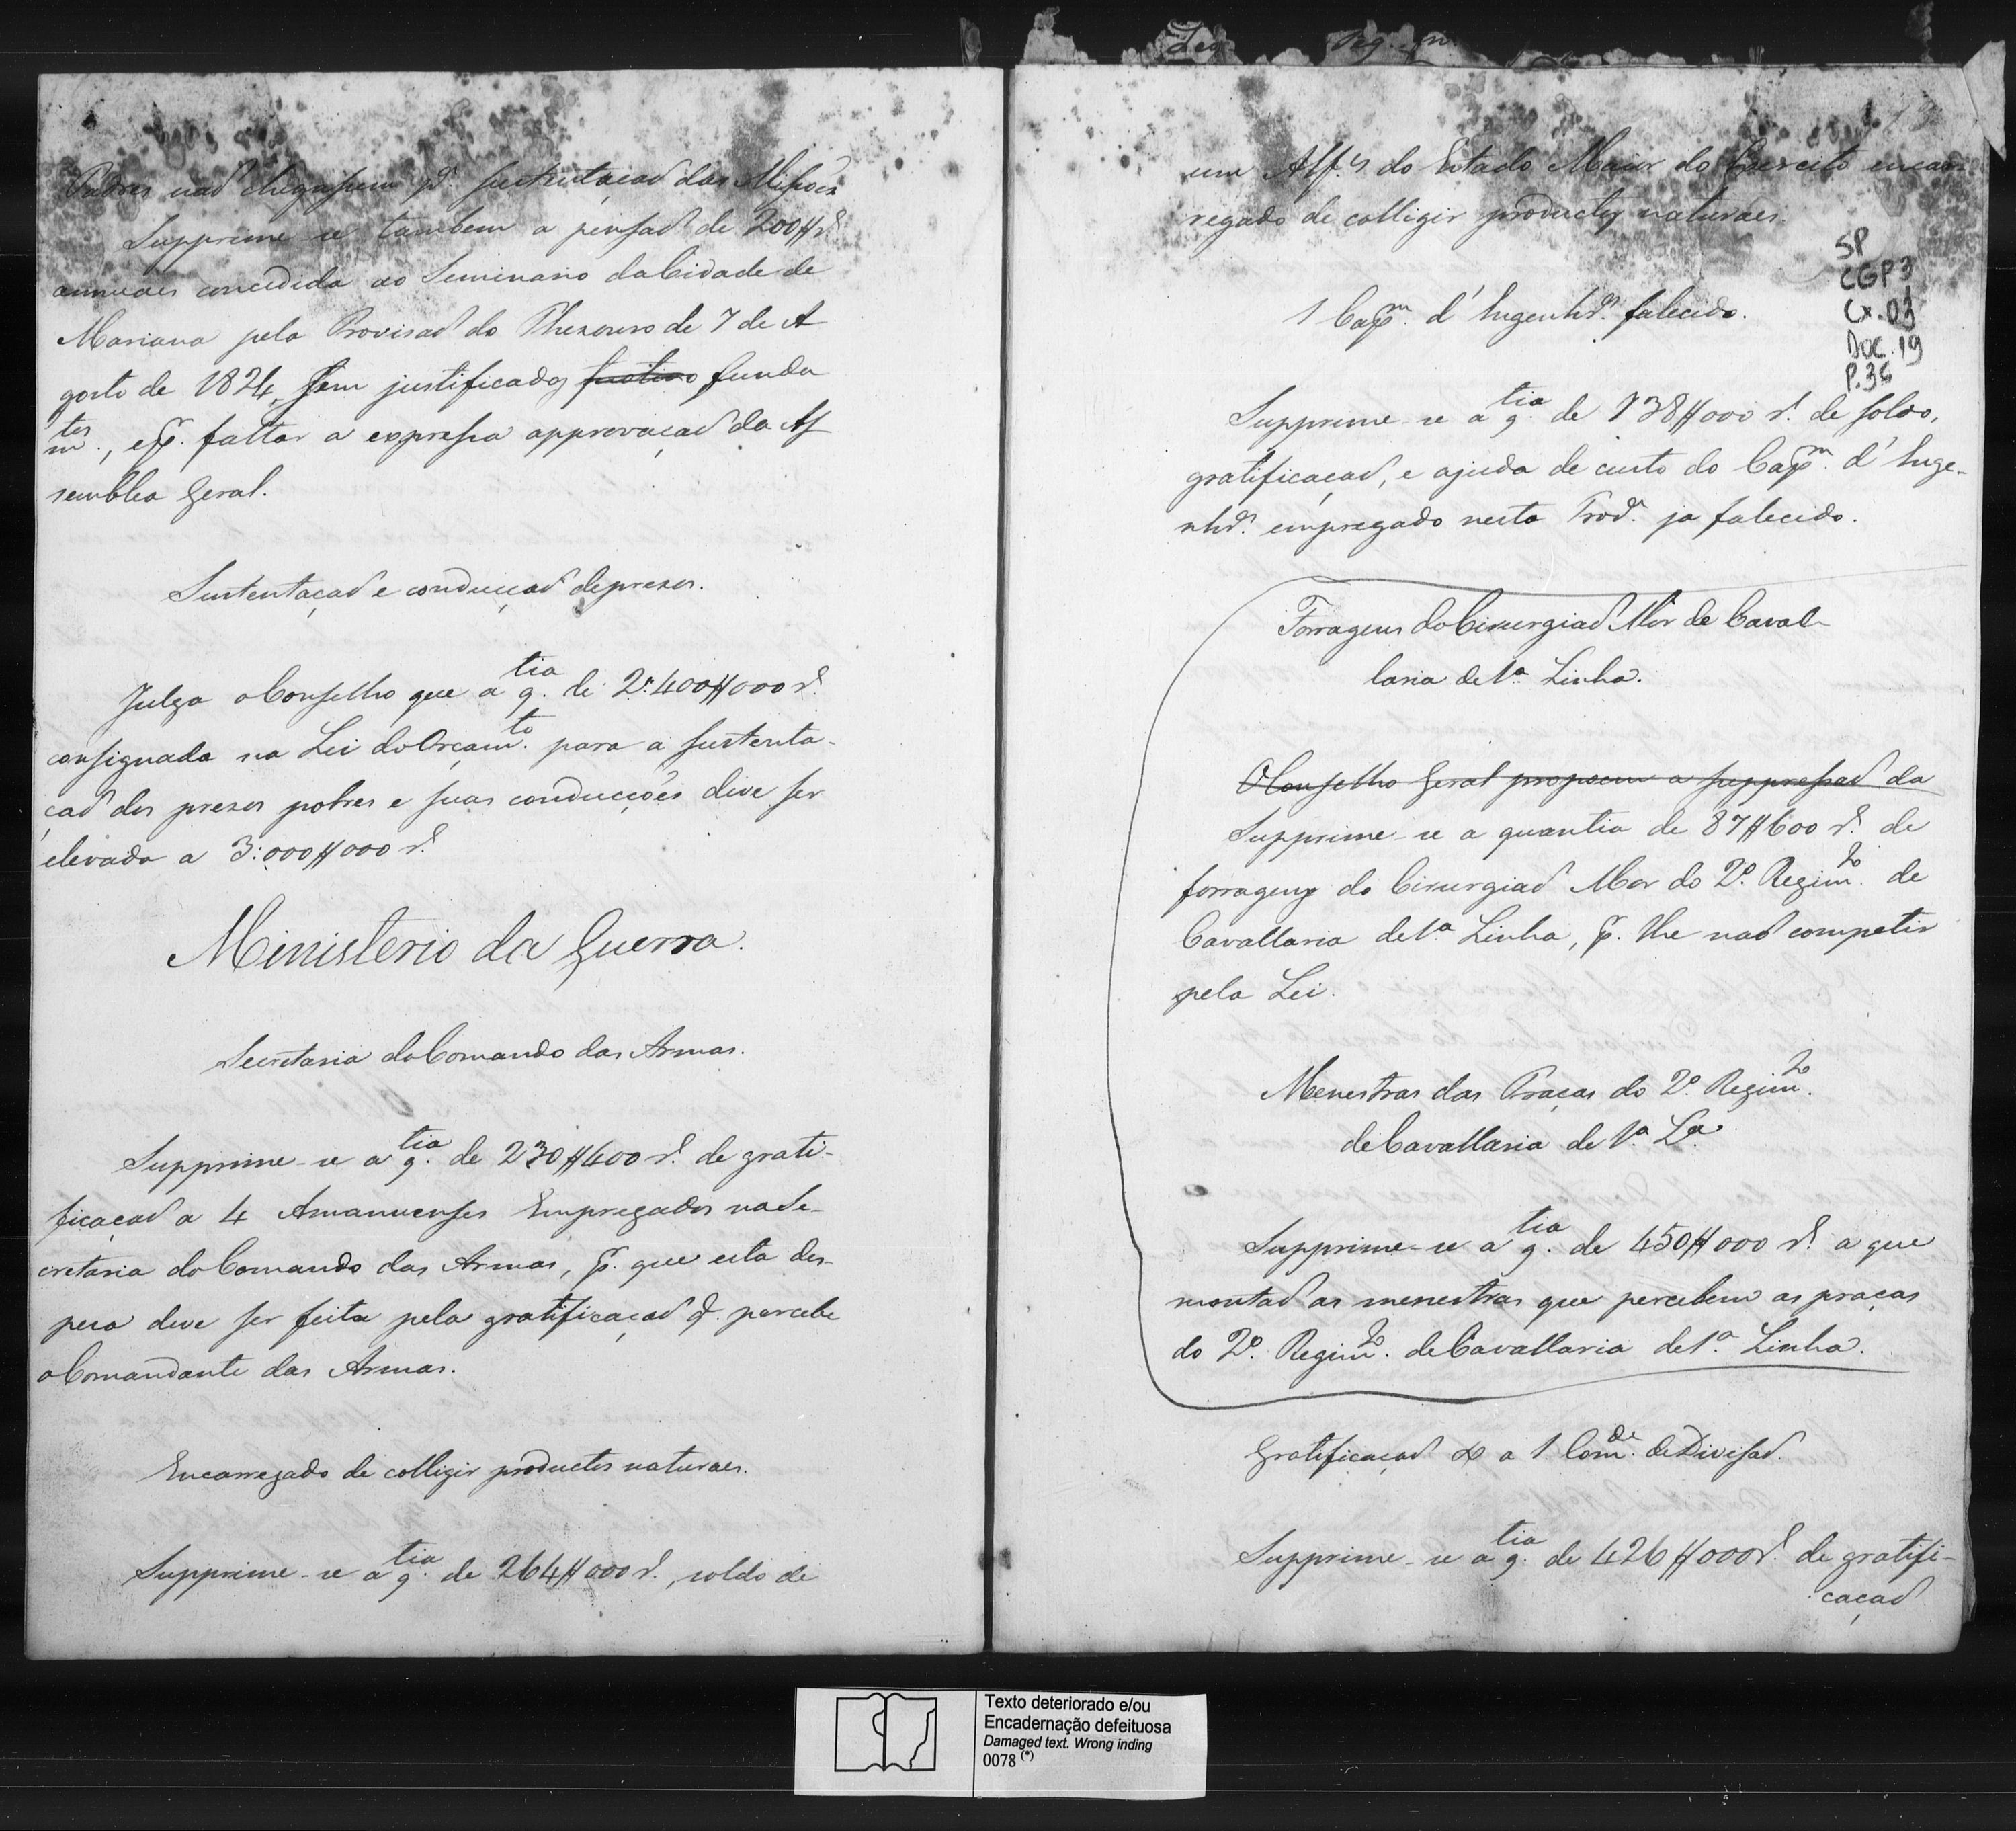 Padres naõ chegassem pª. sustentaçaõ das Missões
Supprime-se tambem a pensaõ de 200$ rs.
annuaes concedida ao Seminario da Cidade de
Mariana pela Provisaõ do Thezouro de 7 de A
gosto de 1824, sem justificados funda
mtos., e p. faltar a expressa approvaçaõ da As
semblea Geral.
Sustentaçaõ e conducçaõ de prezos.
Julga o Conselho que a qtia. de 2:400$000 rs.
consignada na Lei do Orçamto. para a sustenta-
çaõ dos prezos pobres e suas conducções deve ser
elevada a 3:000$000 rs.
Ministerio da Guerra.
Secretaria do Comando das Armas.
Supprime-se a qtia. de 230$400 rs. de grati-
ficaçaõ a 4 Amanuenses Empregados na Se-
cretaria do Comando das Armas, p. que esta des-
peza deve ser feita pela gratificaçaõ q. percebe
o Comandante das Armas.
Encarregado de colligir productos naturaes.
Supprime-se a qtia. de 264$000 rs., soldo de
um Alfes do Estado Maior do Exercito encar
regado de colligir productos naturaes.
SP
CGP3
Cx.03
Doc.19
P.36
1 Capm. d'Engenhrs. falecido.
Supprime-se a qtia. de 738$000 rs. de soldo,
gratificaçaõ, e ajuda de custo do Capm. d'Enge-
nhrs. empregado nesta Prova. ja falecido.
Forragens do Cirurgiaõ Mór de Caval-
laria de 1ª Linha.
O Conselho Geral propoem a suppressaõ da
Supprime-se a quantia de 87$600 rs. de
forragens do Cirurgiaõ Mor do 2º. Regimto. de
Cavallaria de 1ª Linha, p. lhe naõ competir
pela Lei.
Menestras das Praças do 2º. Regimto.
de Cavallaria de 1ª La.
Supprime-se a qtia. de 450$000 rs. a que
montaõ as menestras que percebem as praças
do 2º. Regimto. de Cavallaria de 1ª. Linha.
Gratificaçaõ a 1 Comde. de Divisaõ.
Supprime-se a qtia. de 426$000 rs. de gratifi-
caçaõ
Texto deteriorado e/ou
Encadernação defeituosa
Damaged text. Wrong inding
0078 (*)